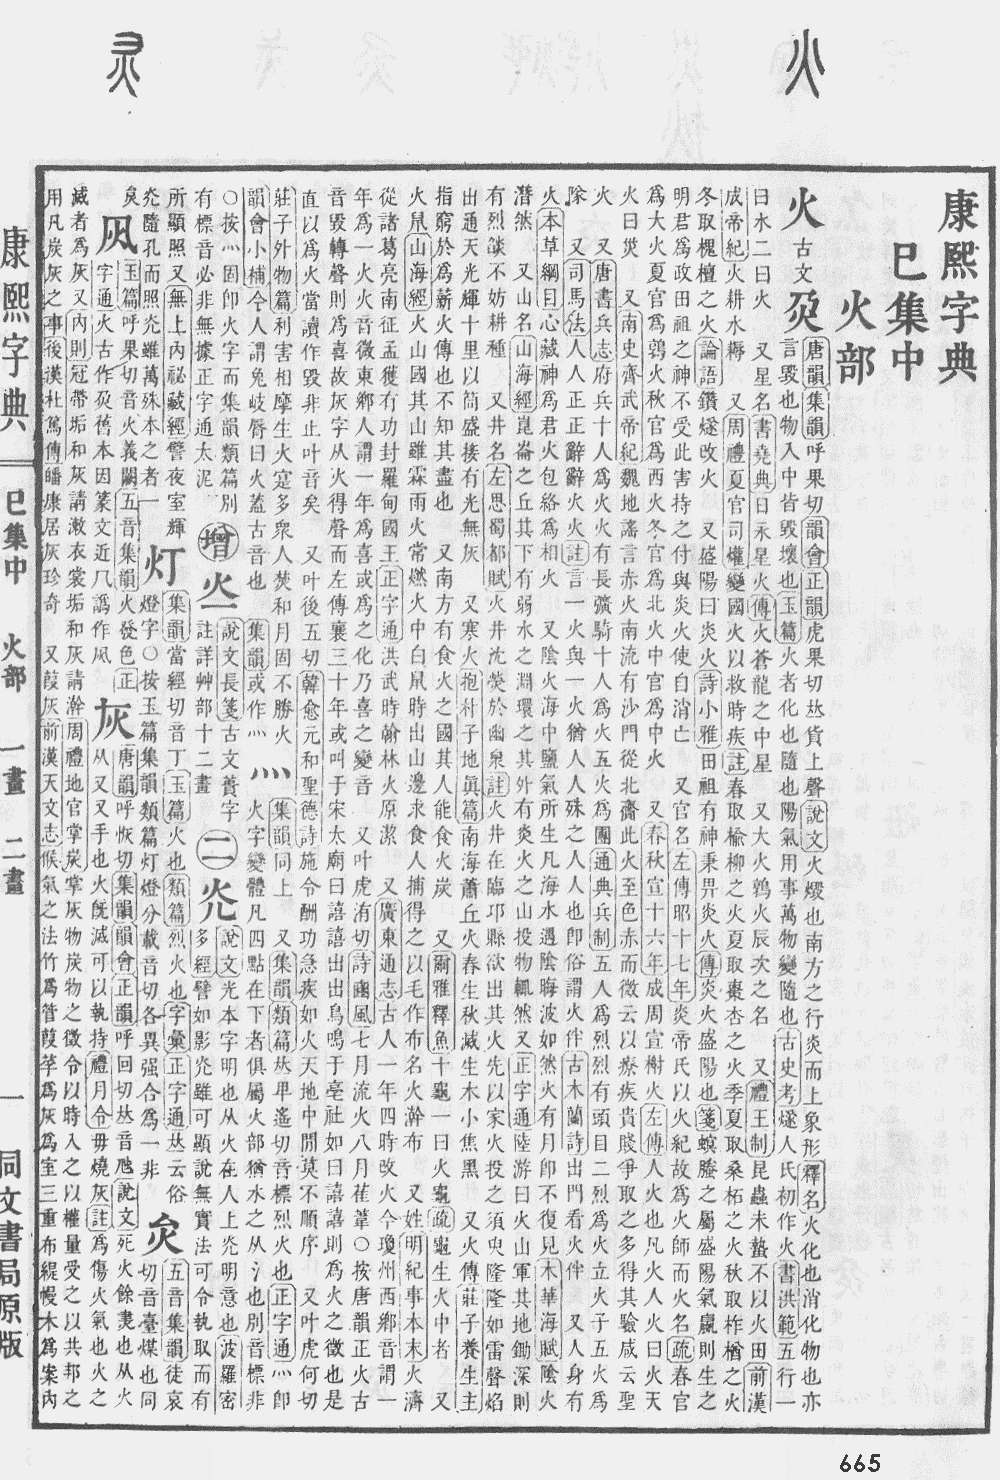 火
灵
康熙字典
巳集中
火部
火 古文 𤆄 唐韻集韻呼果切韻會正韻虎果切𠀤貨上聲說文火燬也南方之行炎而上象形釋名火化也消化物也亦
言毀也物入中皆毀壞也玉篇火者化也隨也陽氣用事萬物變隨也古史考燧人氏初作火書洪範五行一
曰水二曰火 又星名書堯典日永星火傳火蒼龍之中星 又大火鶉火辰次之名 又禮王制昆蟲未蟄不以火田前漢
成帝紀火耕水耨 又周禮夏官司爟變國火以救時疾註春取楡柳之火夏取棗杏之火季夏取桑柘之火秋取柞楢之火
冬取槐檀之火論語鑽燧改火 又盛陽曰炎火詩小雅田祖有神秉畀炎火傳炎火盛陽也箋螟螣之屬盛陽氣贏則生之
明君爲政田祖之神不受此害持之付與炎火使自消亡 又官名左傳昭十七年炎帝氏以火紀故爲火師而火名疏春官
爲大火夏官爲鶉火秋官爲西火冬官爲北火中官爲中火 又春秋宣十六年成周宣榭火左傳人火也凡火人火曰火天
火曰災 又南史齊武帝紀魏地謠言赤火南流有沙門從北齎此火至色赤而微云以療疾貴賤爭取之多得其驗咸云聖
火 又唐書兵志府兵十人爲火火有長彍騎十人爲火五火爲團通典兵制五人爲烈烈有頭目二烈爲火立火子五火爲
隊 又司馬法人人正正辭辭火火註言一火與一火猶人人殊之人人也卽俗謂火伴古木蘭詩出門看火伴 又人身有
火本草綱目心藏神爲君火包絡爲相火 又陰火海中鹽氣所生凡海水遇陰晦波如然火有月卽不復見木華海賦陰火
潛然 又山名山海經崑崙之丘其下有弱水之淵環之其外有炎火之山投物輒然又正字通陸游曰火山軍其地鋤深則
有烈燄不妨耕種 又井名左思蜀都賦火井沈熒於幽泉註火井在臨邛縣欲出其火先以家火投之須臾隆隆如雷聲焰
出通天光輝十里以筒盛接有光無灰 又寒火抱朴子地眞篇南海蕭丘火春生秋滅生木小焦黑 又火傳莊子養生主
指窮於爲薪火傳也不知其盡也 又南方有食火之國其人能食火炭 又爾雅釋魚十龜一曰火龜疏龜生火中者 又
火鼠山海經火山國其山雖霖雨火常燃火中白鼠時出山邊求食人捕得之以毛作布名火澣布 又姓明紀事本末火濟
從諸葛亮南征孟獲有功封羅甸國王正字通洪武時翰林火原潔 又廣東通志古人一年四時改火今瓊州西鄉音謂一
年爲一火火音微東鄉人謂一年爲喜或爲之化乃喜之變音 又叶虎洧切詩豳風七月流火八月萑葦○按唐韻正火古
音毀轉聲則爲喜故灰字从火得聲而左傳襄三十年或叫于宋太廟曰譆譆出出鳥鳴于亳社如曰譆譆則爲火之徵也是
直以爲火當讀作毀非止叶音矣 又叶後五切韓愈元和聖德詩施令酬功急疾如火天地中閒莫不順序 又叶虎何切
莊子外物篇利害相摩生火寔多衆人焚和月固不勝火 灬 集韻同上 又集韻類篇𠀤𤰞遙切音標烈火也正字通灬卽
火字變體凡四點在下者俱屬火部猶水之从氵也別音標非
韻會小補今人謂兔岐脣曰火葢古音也 集韻或作灬
○按灬固卽火字而集韻類篇別
有標音必非無據正字通太泥 增 𤆀 說文長箋古文蕢字
註詳艸部十二畫 二 灮 說文光本字明也从火在人上灮明意也波羅密
多經譬如影灮雖可顯說無實法可令執取而有
所顯照又無上內祕藏經譬夜室輝
灮隨孔而照灮雖萬殊本之者一 灯 集韻當經切音丁玉篇火也類篇烈火也字彙正字通𠀤云俗
燈字○按玉篇集韻類篇灯燈分載音切各異强合爲一非 灻 五音集韻徒哀
切音臺煤也同
炱 凨 玉篇呼果切音火義闕五音集韻火發色正
字通火古作𤆄舊本因篆文近𠘨譌作凨 灰 唐韻呼恢切集韻韻會正韻呼回切𠀤音虺說文死火餘㶳也从火
从又又手也火旣滅可以執持禮月令毋燒灰註爲傷火氣也火之
滅者爲灰又內則冠帶垢和灰請漱衣裳垢和灰請澣周禮地官掌炭掌灰物炭物之徵令以時入之以權量受之以共邦之
用凡炭灰之事後漢杜篤傳皤康居灰珍奇 又葭灰前漢天文志候氣之法竹爲管葭莩爲灰爲室三重布緹幔木爲案內
康熙字典 巳集中 火部 一畫 二畫 一 同文書局原版
665